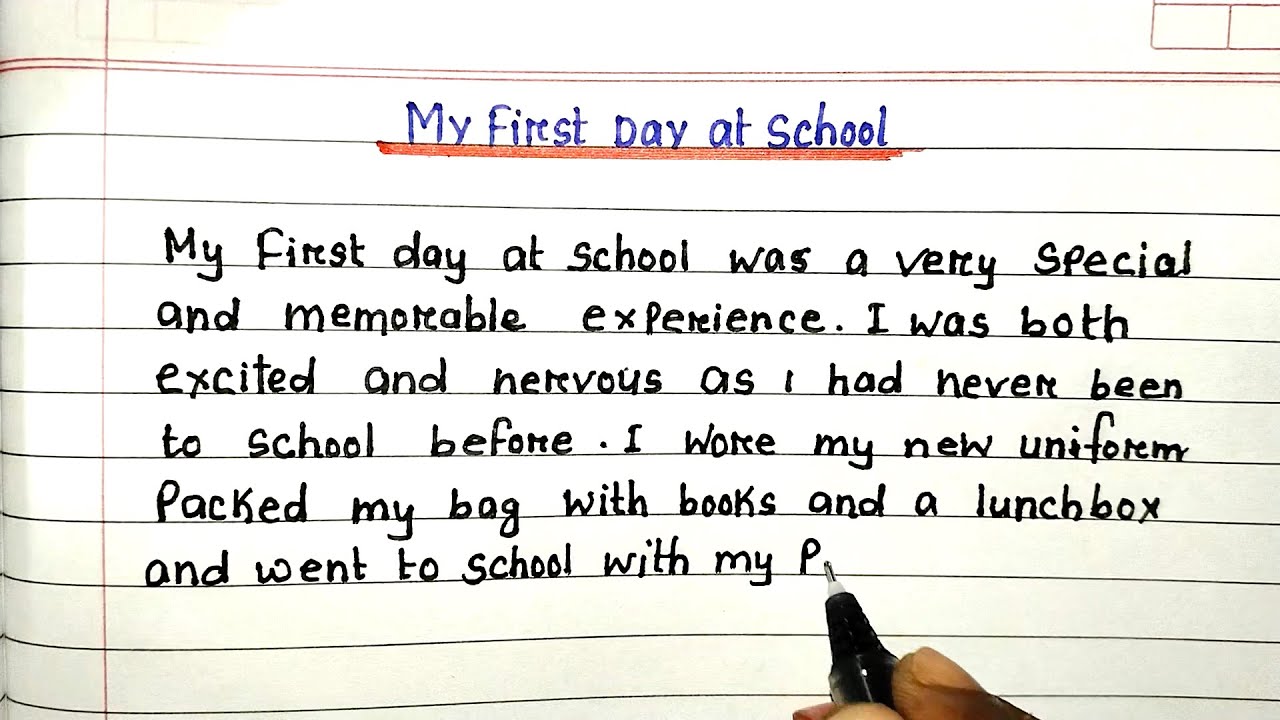 My First Day at School
My First day at school was a very special
and memorable experience. I was both
excited and nervous as I had never been
to school before. I wore my new uniform
Packed my bag with books and a lunchbox
and went to school with my P